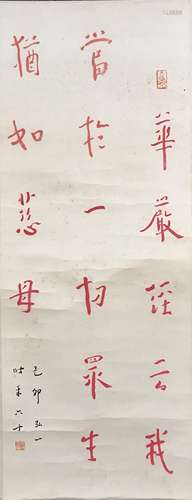 華嚴經云我
當於一切眾生
猶如慈母
己卯弘一
时年六十